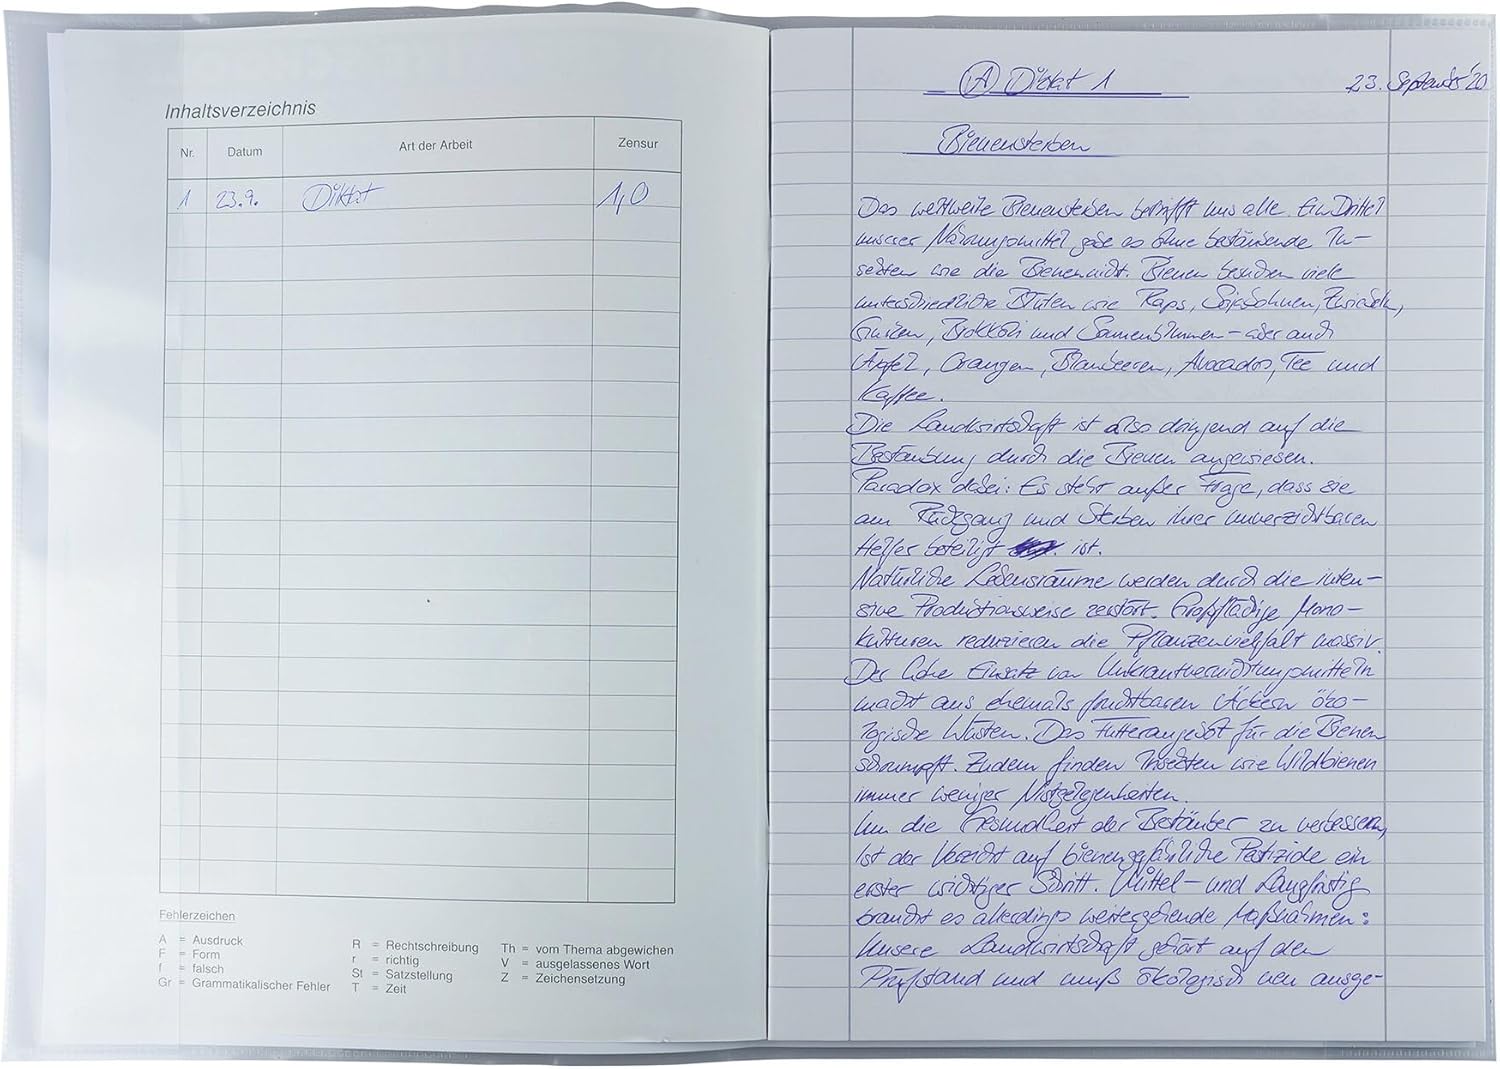 Inhaltsverzeichnis
Nr. Datum Art der Arbeit Zensur
1 23.9. Diktat 1,0
Fehlerzeichen
A = Ausdruck
F = Form
f = falsch
Gr = Grammatikalischer Fehler
R = Rechtschreibung
r = richtig
St = Satzstellung
T = Zeit
Th = vom Thema abgewichen
V = ausgelassenes Wort
Z = Zeichensetzung
A Diktat 1 23. September '20
Bienensterben
Das weltweite Bienensterben betrifft uns alle. Ein Drittel
unserer Nahrungsmittel gäbe es ohne bestäubende In-
sekten wie die Bienen nicht. Bienen besuchen viele
unterschiedliche Blüten wie Raps, Sojabohnen, Zwiebeln,
Gurken, Brokkoli und Sonnenblumen - aber auch
Äpfel, Orangen, Blaubeeren, Avocados, Tee und
Kaffee.
Die Landwirtschaft ist also dringend auf die
Bestäubung durch die Bienen angewiesen.
Paradox dabei: Es steht außer Frage, dass sie
am Rückgang und Sterben ihrer unverzichtbaren
Helfer beteiligt ist.
Natürliche Lebensräume werden durch die inten-
sive Produktionsweise zerstört. Großflächige Mono-
kulturen reduzieren die Pflanzenvielfalt massiv.
Der hohe Einsatz von Unkrautvernichtungsmitteln
macht aus ehemals fruchtbaren Äckern öko-
logische Wüsten. Das Futterangebot für die Bienen
schrumpft. Zudem finden Insekten wie Wildbienen
immer weniger Nistgelegenheiten.
Um die Gesundheit der Bestäuber zu verbessern,
ist der Verzicht auf bienengefährliche Pestizide ein
erster wichtiger Schritt. Mittel- und langfristig
braucht es allerdings weitergehende Maßnahmen:
Unsere Landwirtschaft gehört auf den
Prüfstand und muß ökologisch neu ausge-